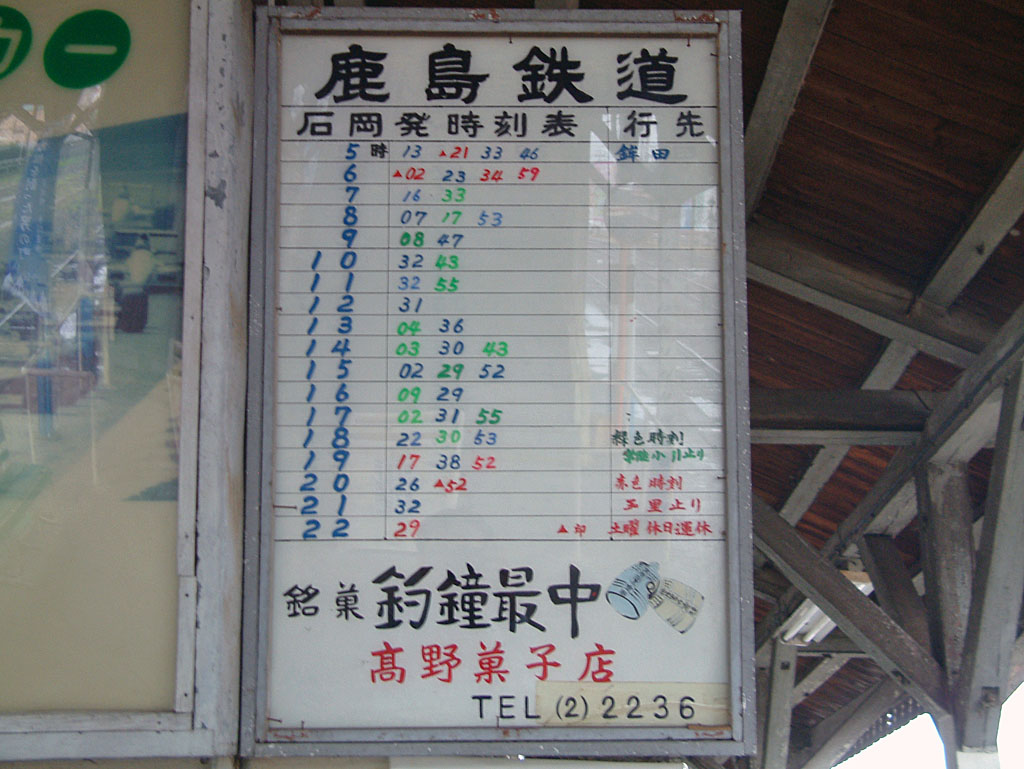 カー
鹿島鉄道
石岡発時刻表 行先
5時 13 ▲21 33 46 鉾田
6 ▲02 23 34 59
7 16 33
8 07 17 53
9 08 47
10 32 43
11 32 55
12 31
13 04 36
14 03 30 43
15 02 29 52
16 09 29
17 02 31 55
18 22 30 53 緑色時刻
常陸小川止り
19 17 38 52
20 26 ▲52 赤色時刻
21 32 玉里止り
22 29 ▲印 土曜休日運休
銘菓 釣鐘最中
髙野菓子店
TEL (2)2236